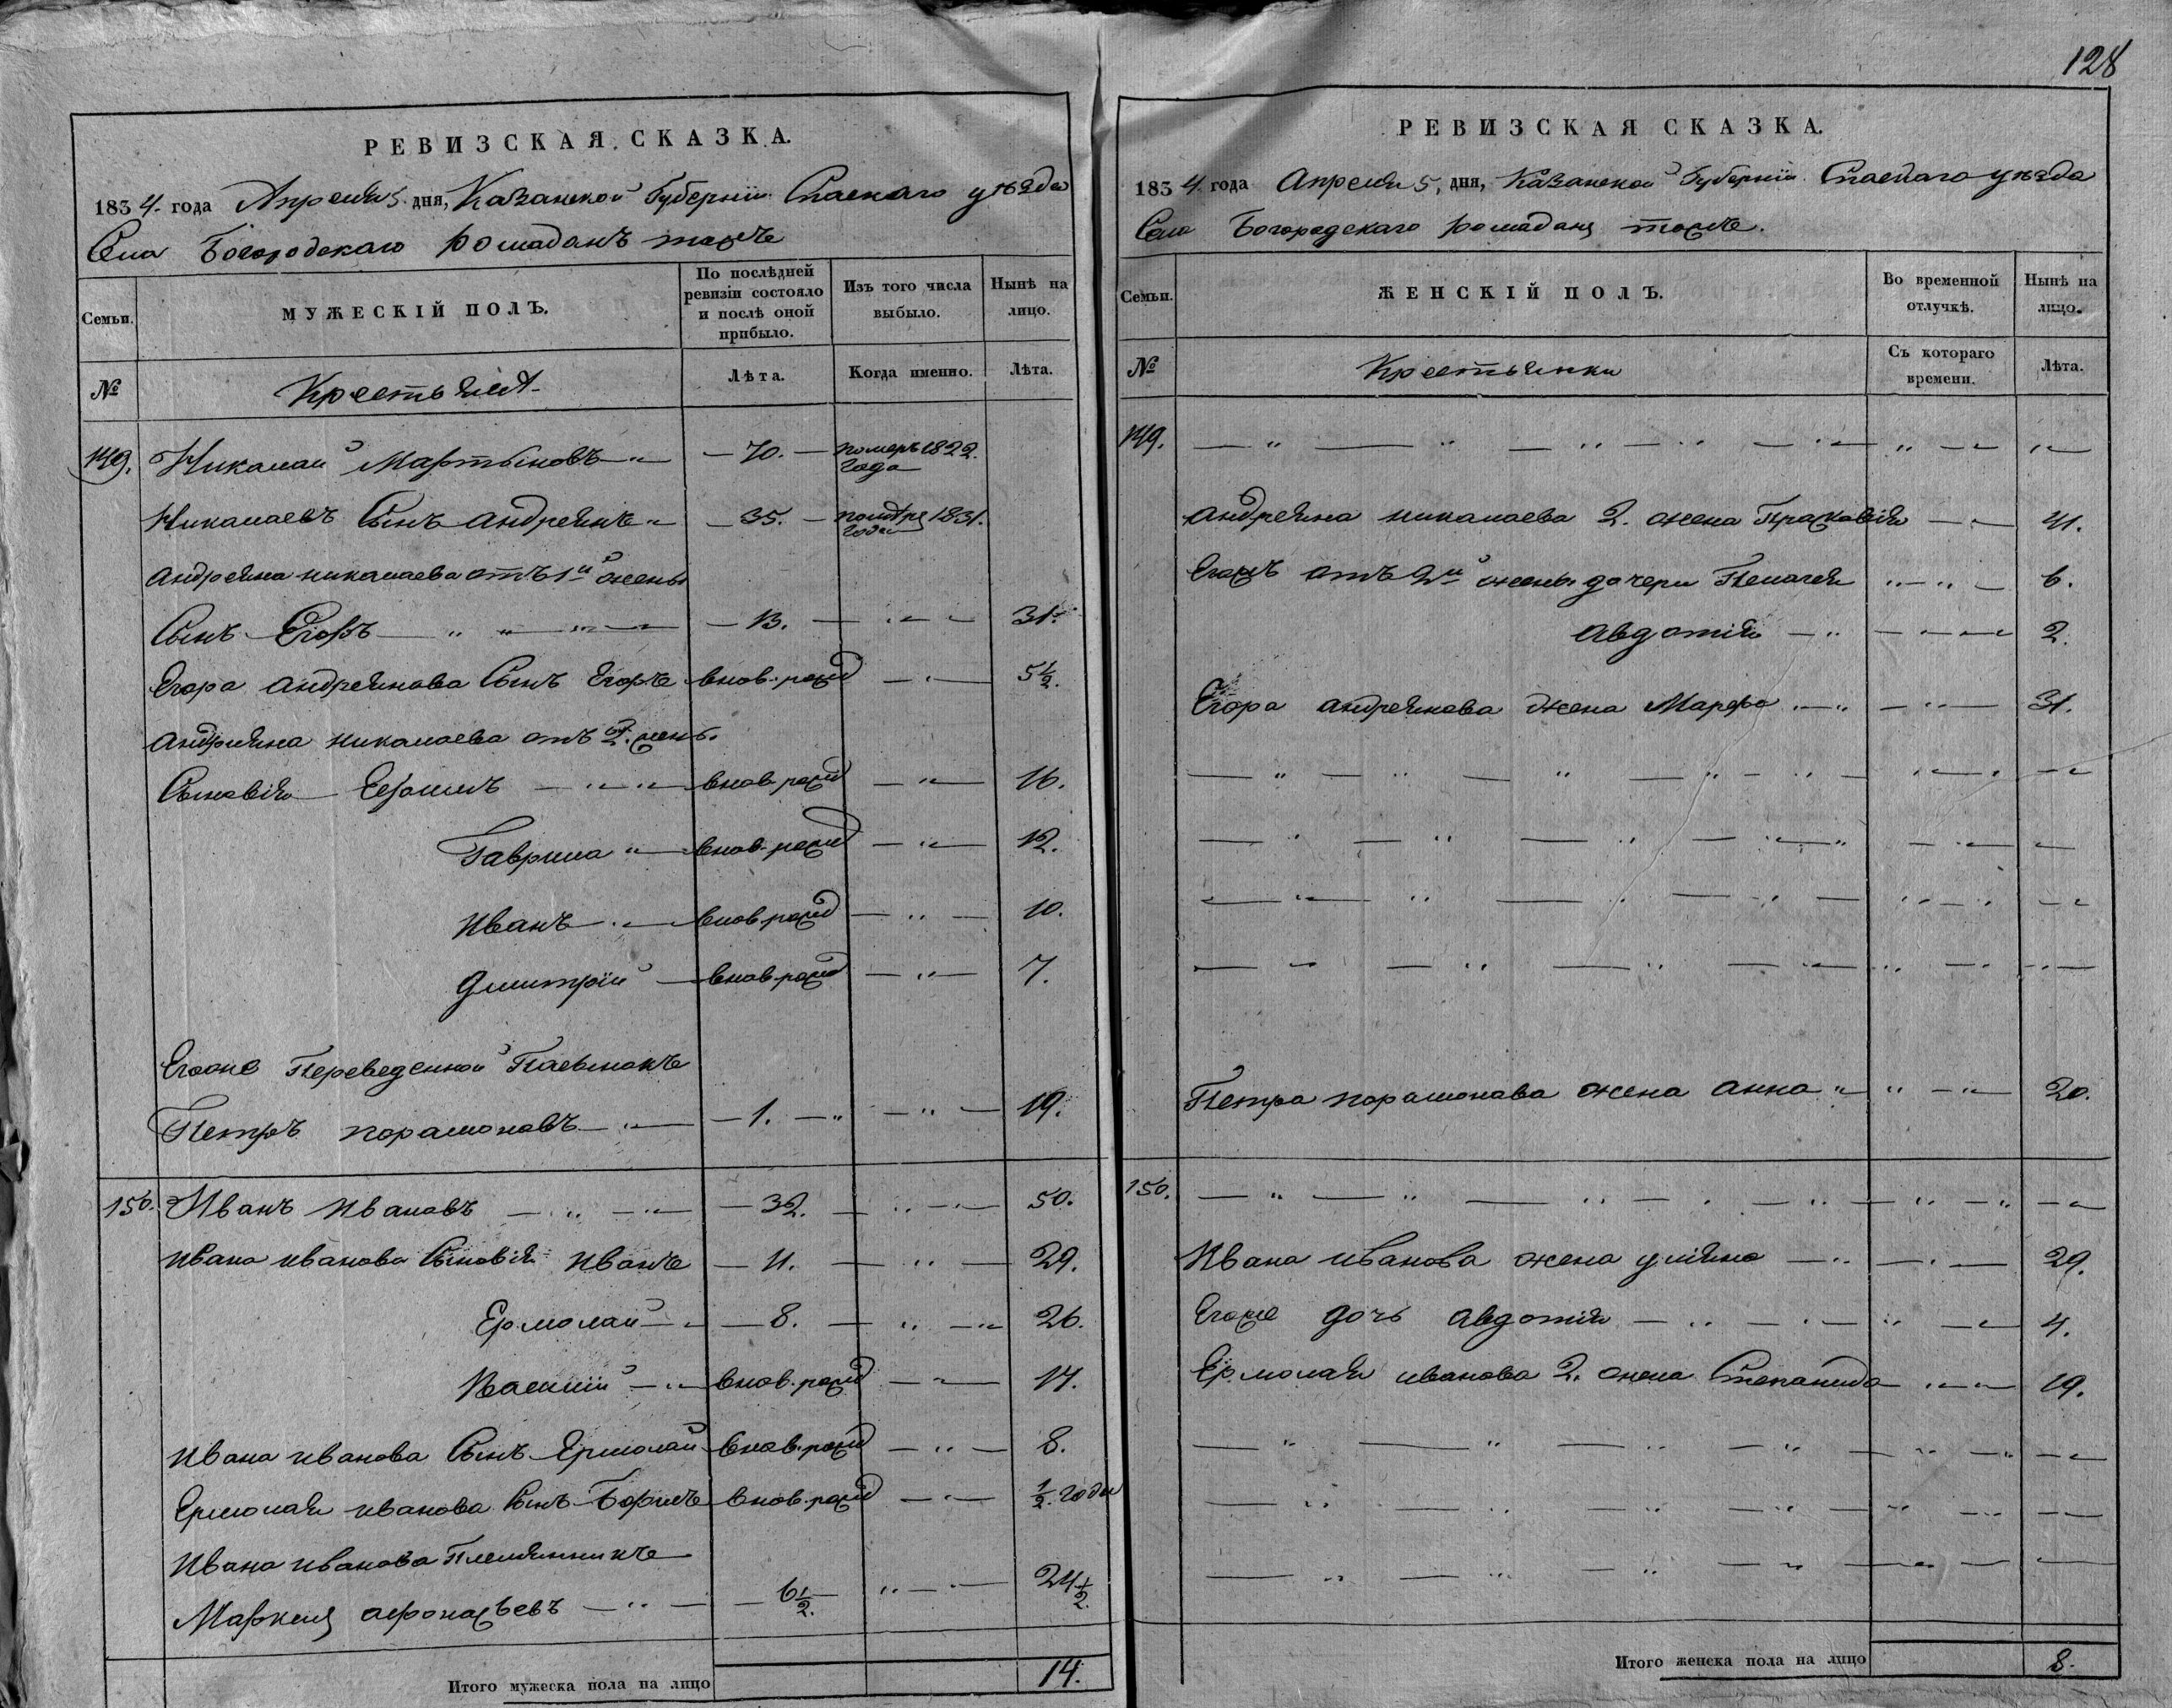 128
РЕВИЗСКАЯ СКАЗКА.
1834. года Апреля 5. дня, Казанской Губернiи Спаскаго уезда
Села Богородскаго Ромаданъ тожъ
Семьи.
МУЖЕСКІЙ ПОЛЪ.
По послѣдней ревизіи состояло и послѣ оной прибыло.
Изъ того числа выбыло.
Нынѣ на лицо.
№
Крестьяня
Лѣта.
Когда именно.
Лѣта.
149. Никалай Мартыновъ 70. померъ 1822. года
Никалаевъ Сынъ андреянъ 35. 1831. года
андреяна никалаева отъ 1й жены
Сынъ Егоръ 13. 31.
Егора андреянова Сынъ Егоръ внов. рожд 5 1/2.
андрияна никалаева отъ 2й жены.
Сыновiя Ефимъ внов. рожд 16.
Гаврила внов. рожд 12.
иванъ внов. рожд 10.
дмитрiй внов. рожд 7.
Егоже Переведенной
Петръ парамоновъ 1. 19.
150. Иванъ ивановъ 32. 50.
ивана иванова Сыновiя иванъ 11. 29.
Ермолай 8. 26.
Василiй внов. рожд 14.
ивана иванова Сынъ Ермолай внов. рожд 8.
Ермолая иванова Сынъ Борисъ внов. рожд 1/2. года
ивана иванова Племянникъ
Маркелъ афонасьевъ 6 1/2. 24 1/2.
Итого мужеска пола на лицо 14.
РЕВИЗСКАЯ СКАЗКА.
1834. года Апреля 5, дня, Казанской Губернiи Спаскаго уезда
Села Богородскаго Ромаданъ тожъ.
Семьи.
ЖЕНСКІЙ ПОЛЪ.
Во временной отлучкѣ.
Нынѣ на лицо.
№
Крестьянки
Съ котораго времени.
Лѣта.
149.
андреяна никалаева 2. жена Праскавiя 41.
Егожъ отъ 2й жены дочери Пелагея 6.
авдотiя 2.
Егора андреянова жена Марфа 31.
Петра парамонава жена анна 20.
150.
Ивана иванова жена улiяна 29.
Егоже дочь авдотiя 4.
Ермолая иванова 2. жена Степанида 19.
Итого женска пола на лицо 8.